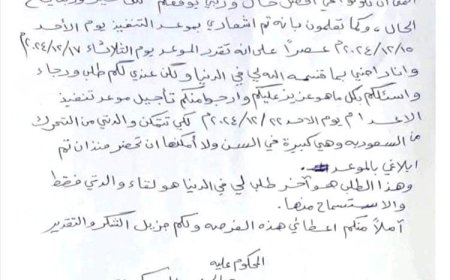 الحال، وكما تعلمون بانه تم اشعاري بموعد التنفيذ يوم الأحد
٢٠٢٤/١٢/١٥م عصراً على انه تقرر الموعد يوم الثلاثاء ٢٠٢٤/١٢/١٧م
وانا راضي بما قسمه الله لي في الدنيا ولكن عندي لكم طلب ورجاء
واسئلكم بكل ما هو عزيز عليكم وارجوا منكم تأجيل موعد تنفيذ
الاعدام يوم الاحد ٢٠٢٤/١٢/٢٢م لكي تتمكن والدتي من التحرك
من السعوديه وهي كبيرة في السن ولا أمكنها ان تحضر منذ ان تم
ابلاغي بالموعد.
وهذا الطلب هو آخر طلب لي في الدنيا هو لقاء والدتي فقط
والاستسماح منها.
آملاً منكم اعطائي هذه الفرصه ولكم جزيل الشكر والتقدير
المحكوم عليه